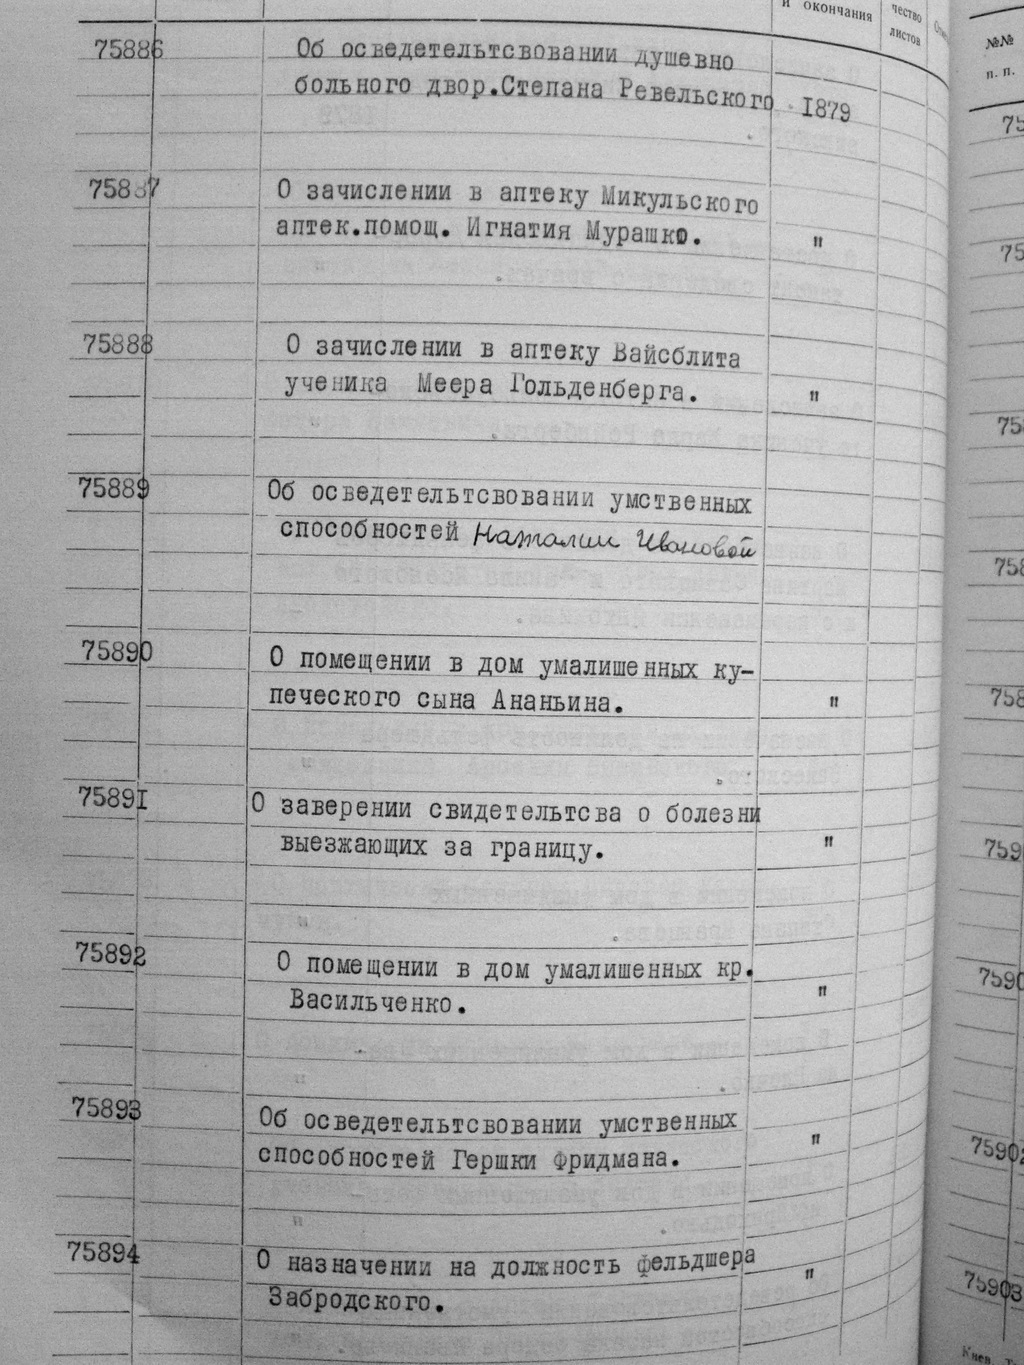 и окончания
чество
листов
№№
п. п.
75886
Об осведетельтсвовании душевно
больного двор.Степана Ревельского 1879
75887
О зачислении в аптеку Микульского
аптек.помощ. Игнатия Мурашко. "
75888
О зачислении в аптеку Вайсблита
ученика Меера Гольденберга. "
75889
Об осведетельтсвовании умственных
способностей Наталии Ивановой
75890
О помещении в дом умалишенных ку-
печеского сына Ананьина. "
75891
О заверении свидетельтсва о болезни
выезжающих за границу. "
75892
О помещении в дом умалишенных кр.
Васильченко. "
75893
Об осведетельтсвовании умственных
способностей Гершки Фридмана. "
75894
О назначении на должность фельдшера
Забродского. "
75903
Киев